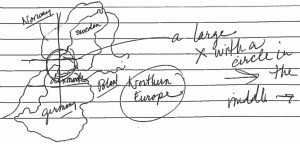 Norway
Sweden
Denmark
Poland
Germany
Northern
Europe
a large
X with a
circle in
the
middle